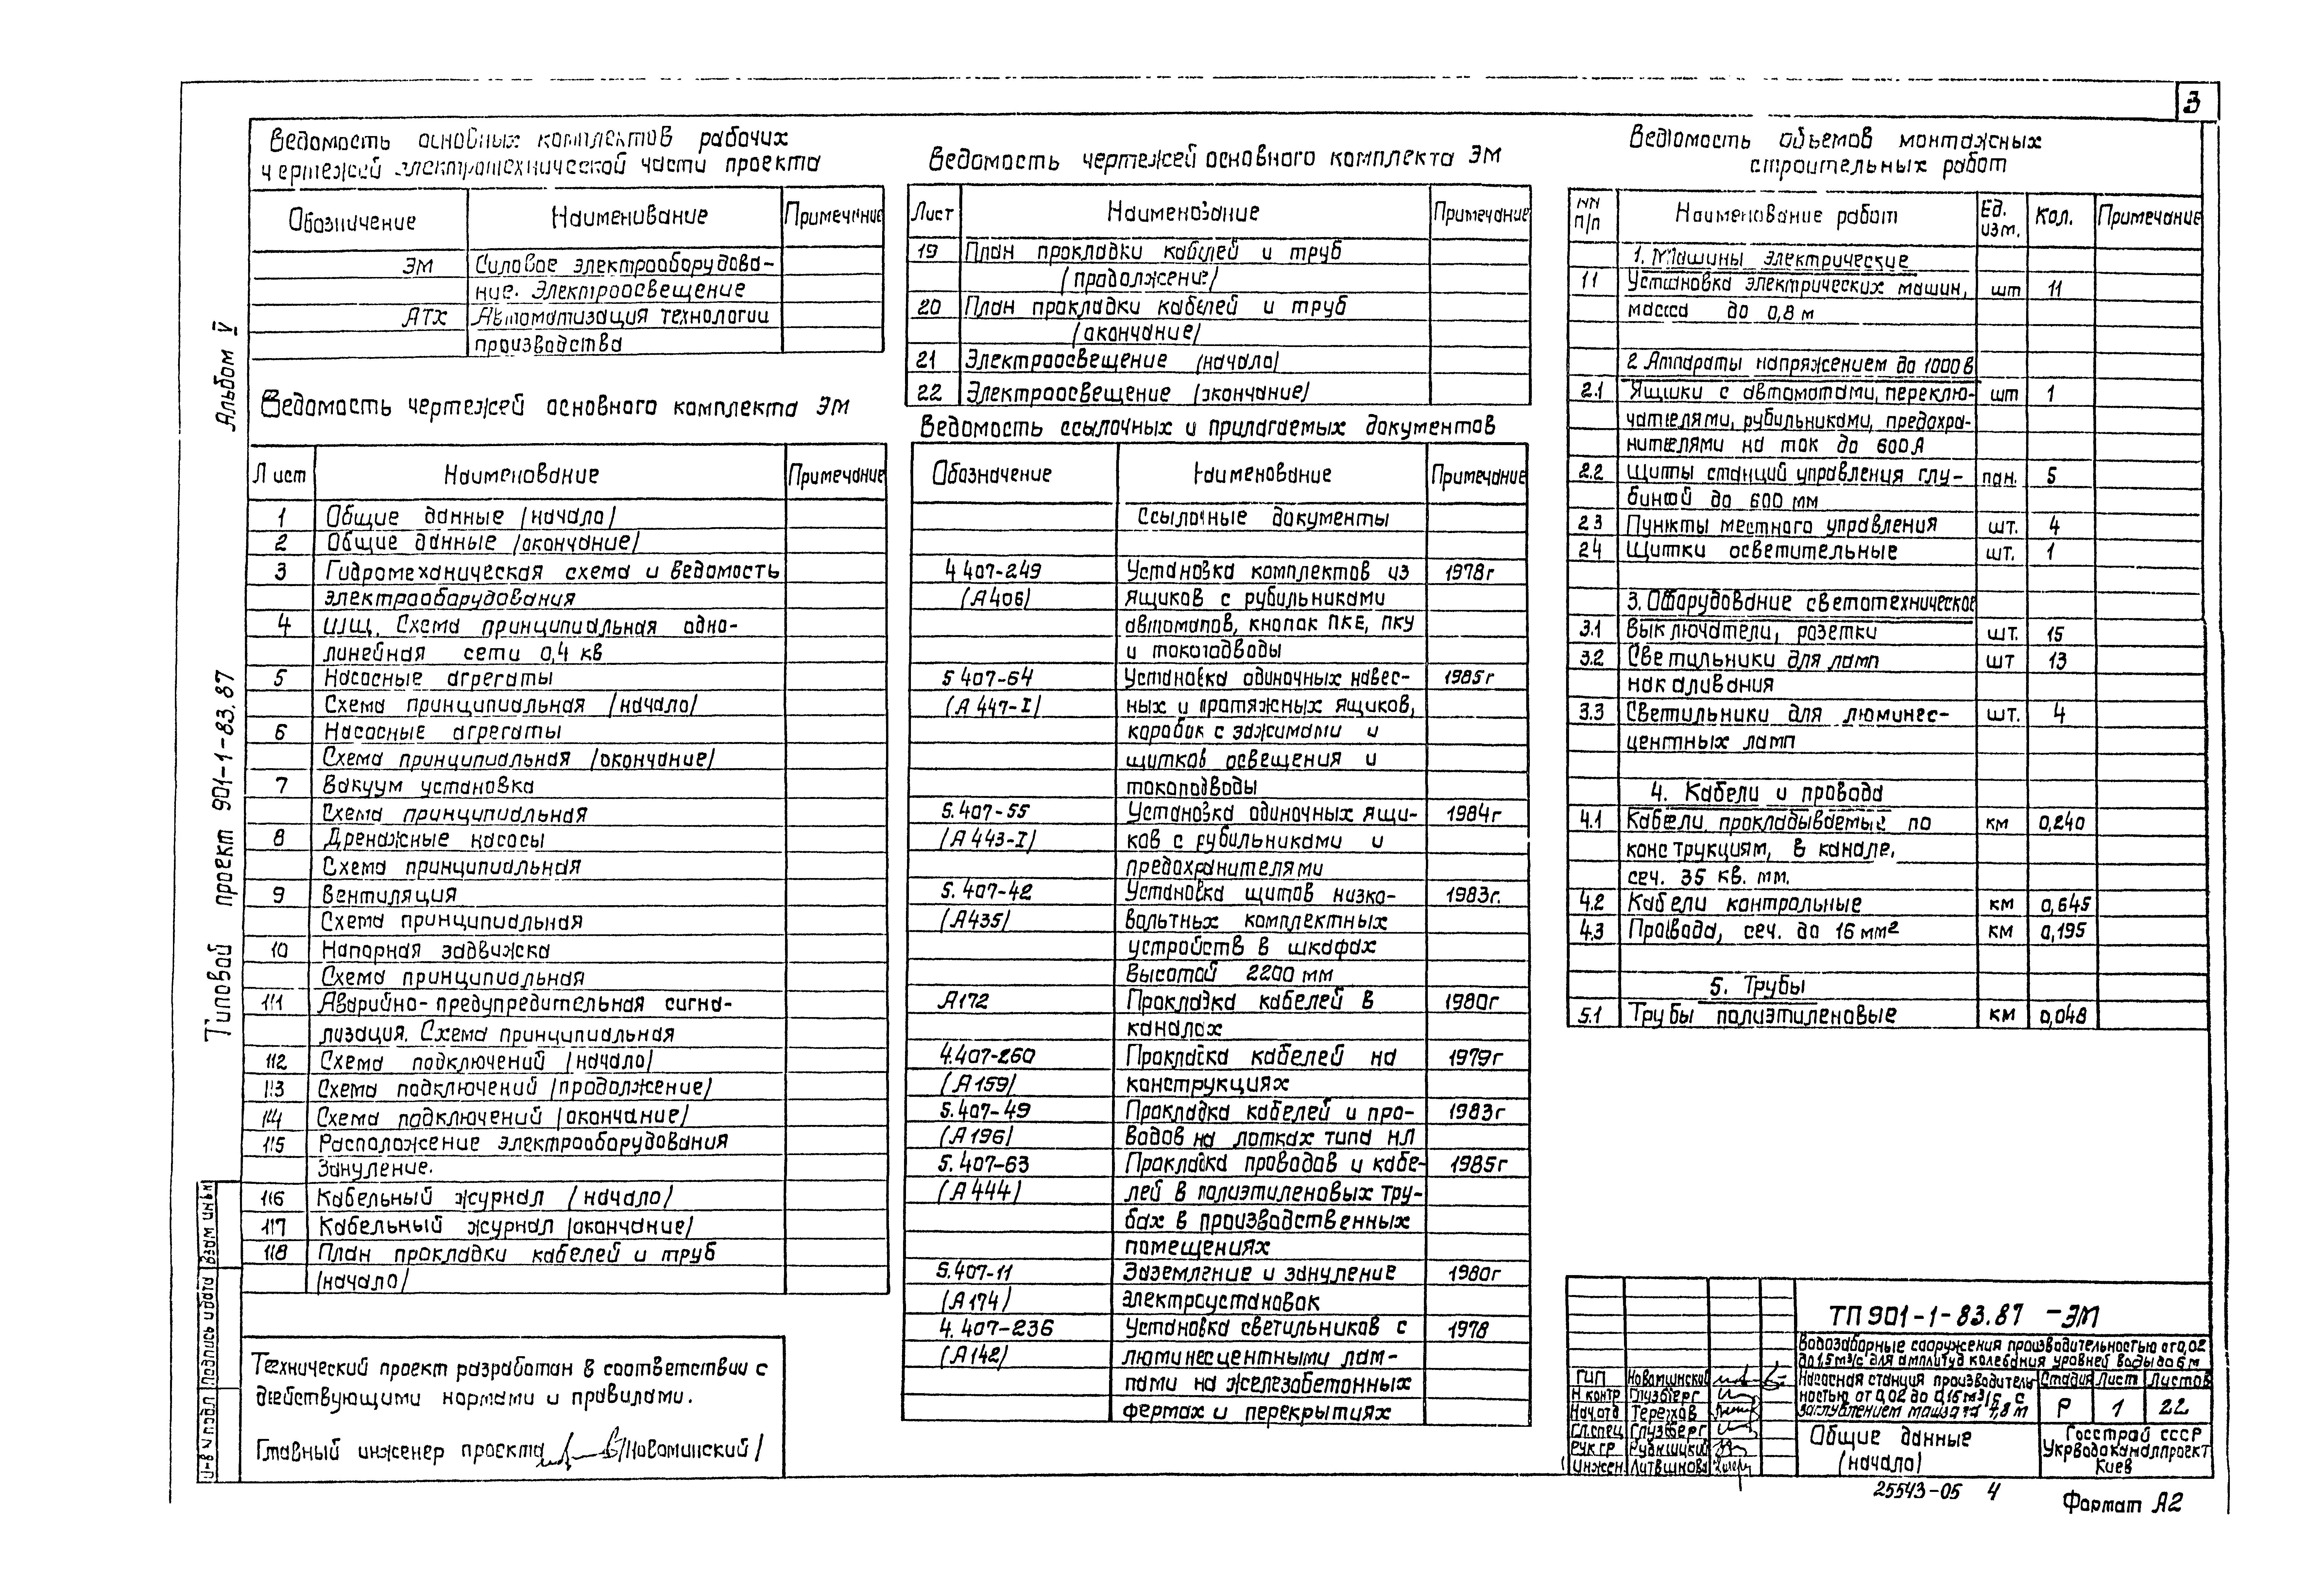 3
Ведомость основных комплектов рабочих
чертежей электротехнической части проекта
Обозначение Наименование Примечание
ЭМ Силовое электрооборудова-
ние. Электроосвещение
АТХ Автоматизация технологии
производства
Ведомость чертежей основного комплекта ЭМ
Лист Наименование Примечание
1 Общие данные /начало/
2 Общие данные /окончание/
3 Гидромеханическая схема и ведомость
электрооборудования
4 ЩЩ. Схема принципиальная одно-
линейная сети 0,4 кв
5 Насосные агрегаты
Схема принципиальная /начало/
6 Насосные агрегаты
Схема принципиальная /окончание/
7 Вакуум установка
Схема принципиальная
8 Дренажные насосы
Схема принципиальная
9 Вентиляция
Схема принципиальная
10 Напорная задвижка
Схема принципиальная
11 Аварийно-предупредительная сигна-
лизация. Схема принципиальная
12 Схема подключений /начало/
13 Схема подключений /продолжение/
14 Схема подключений /окончание/
15 Расположение электрооборудования
Зануление.
16 Кабельный журнал /начало/
17 Кабельный журнал /окончание/
18 План прокладки кабелей и труб
/начало/
Технический проект разработан в соответствии с
действующими нормами и правилами.
Главный инженер проекта /Новоминский/
Ведомость чертежей основного комплекта ЭМ
Лист Наименование Примечание
19 План прокладки кабелей и труб
/продолжение/
20 План прокладки кабелей и труб
/окончание/
21 Электроосвещение /начало/
22 Электроосвещение /окончание/
Ведомость ссылочных и прилагаемых документов
Обозначение Наименование Примечание
Ссылочные документы
4 407-249 Установка комплектов из 1978г
(А406) ящиков с рубильниками
автоматов, кнопок ПКЕ, ПКУ
и токоподводы
5 407-64 Установка одиночных навес- 1985г
(А 447-I) ных и протяжных ящиков,
коробок с зажимами и
щитков освещения и
токоподводы
5.407-55 Установка одиночных ящи- 1984г
(А 443-I) ков с рубильниками и
предохранителями
5.407-42 Установка щитов низко- 1983г.
(А435) вольтных комплектных
устройств в шкафах
высотой 2200 мм
А172 Прокладка кабелей в 1980г
каналах
4.407-260 Прокладка кабелей на 1979г
(А159) конструкциях
5.407-49 Прокладка кабелей и про- 1983г
(А196) водов на лотках типа НЛ
5.407-63 Прокладка проводов и кабе- 1985г
(А444) лей в полиэтиленовых тру-
бах в производственных
помещениях
5.407-11 Заземление и зануление 1980г
(А174) электроустановок
4.407-236 Установка светильников с 1978
(А142) люминесцентными лам-
пами на железобетонных
фермах и перекрытиях
Ведомость объемов монтажных
строительных работ
NN п/п Наименование работ Ед. изм. Кол. Примечание
1. Машины электрические
11 Установка электрических машин, шт 11
масса до 0,8 м
2 Аппараты напряжением до 1000 в
2.1 Ящики с автоматами, переклю- шт 1
чателями, рубильниками, предохра-
нителями на ток до 600 А
2.2 Щиты станций управления глу- пан. 5
биной до 600 мм
2 3 Пункты местного управления шт. 4
2 4 Щитки осветительные шт. 1
3. Оборудование светотехническое
3.1 Выключатели, розетки шт. 15
3.2 Светильники для ламп шт 13
накаливания
3.3 Светильники для люминес- шт. 4
центных ламп
4. Кабели и провода
4.1 Кабели, прокладываемые по км 0,240
конструкциям, в канале,
сеч. 35 кв. мм.
4.2 Кабели контрольные км 0,645
4.3 Провода, сеч. до 16 мм² км 0,195
5. Трубы
5.1 Трубы полиэтиленовые км 0,048
ТП 901-1-83.87 -ЭМ
Водозаборные сооружения производительностью от 0,02
до 1,5 м³/с для амплитуд колебания уровней воды до 6 м
ГИП Новоминский
Н контр Глузберг
Нач.отд Терехов
Гл.спец Глузберг
Рук гр Рудницкий
Инжен Литвинова
Насосная станция производитель
ностью от 0,02 до 0,15 м³/с с
заглублением машзала 7,8 м
Стадия Лист Листов
Р 1 22
Общие данные
(начало)
Госстрой СССР
Укрводоканалпроект
Киев
25543-05 4
Формат А2
Альбом V
Типовой проект 901-1-83.87
Взам инв N
Подпись и дата
Инв N подл